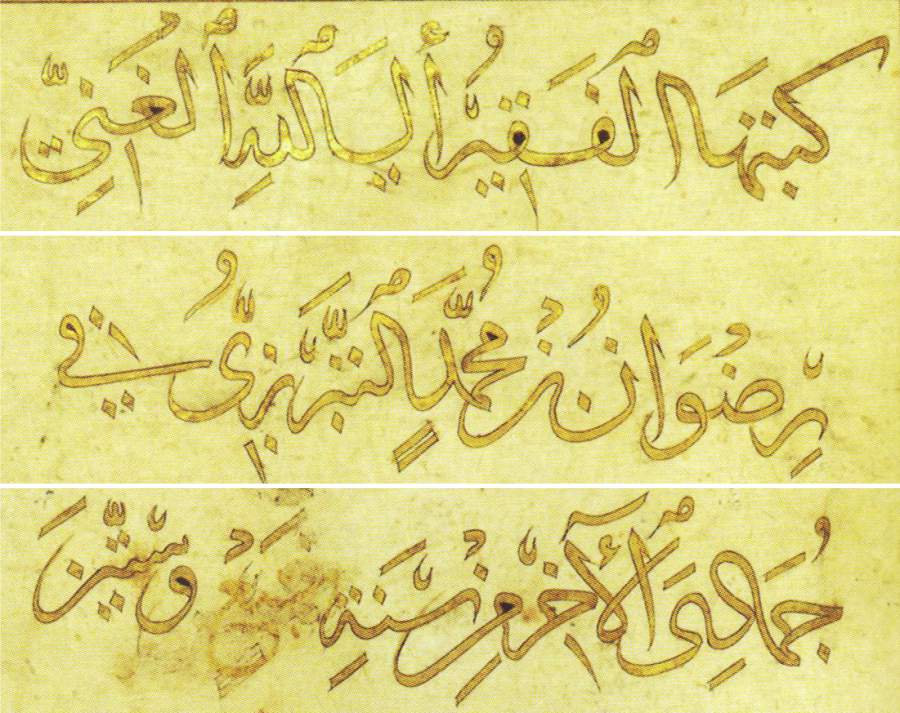 كتبها الفقير إلى الله الغني
رضوان بن محمد التبريزي في
جمادى الآخر من سنة وستين